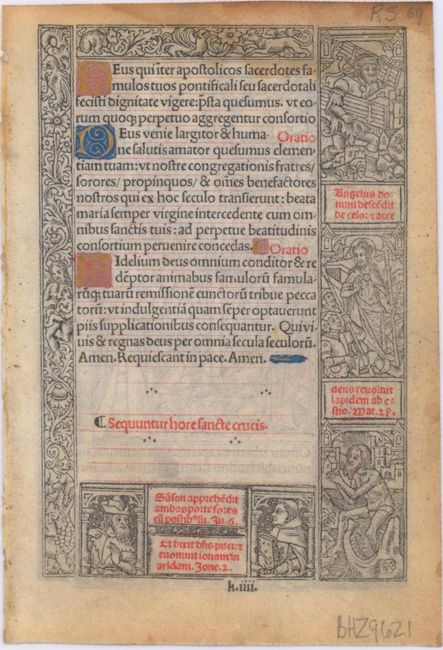 RS 69
Deus qui īter apostolicos sacerdotes fa-
mulos tuos pontificali seu sacerdotali
fecisti dignitate vigere: p̄sta quesumus. vt eo-
rum quoq; perpetuo aggregentur consortio
Deus venie largitor & huma- Oratio
ne salutis amator quesumus clemen-
tiam tuam: vt nostre congregationis fratres/
sorores/ propinquos/ & om̄es benefactores
nostros qui ex hoc seculo transierunt: beata
maria semper virgine intercedente cum om-
nibus sanctis tuis: ad perpetue beatitudinis
consortium peruenire concedas. Oratio
Fidelium deus omnium conditor & re
dēptor animabus famuloru̅ famula-
rūq; tuarū remissionē cunctorū tribue pecca
torū: vt indulgentiā quam sēper optauerunt
piis supplicationibus consequantur. Qui vi-
uis & regnas deus per omnia secula seculorū.
Amen. Requiescant in pace. Amen.
¶ Sequuntur hore sancte crucis.
Angelus do-
mini descēdit
de celo: & acce
dens reuoluit
lapidem
Mat. 28.
Sāson apprehēdit
ambas porte fores
cū postibꝰ Ju.
Et dixit dn̄s pisci: &
euomuit ionam in
aridam. Jone. 2.
k.iiii.
BHZ9621